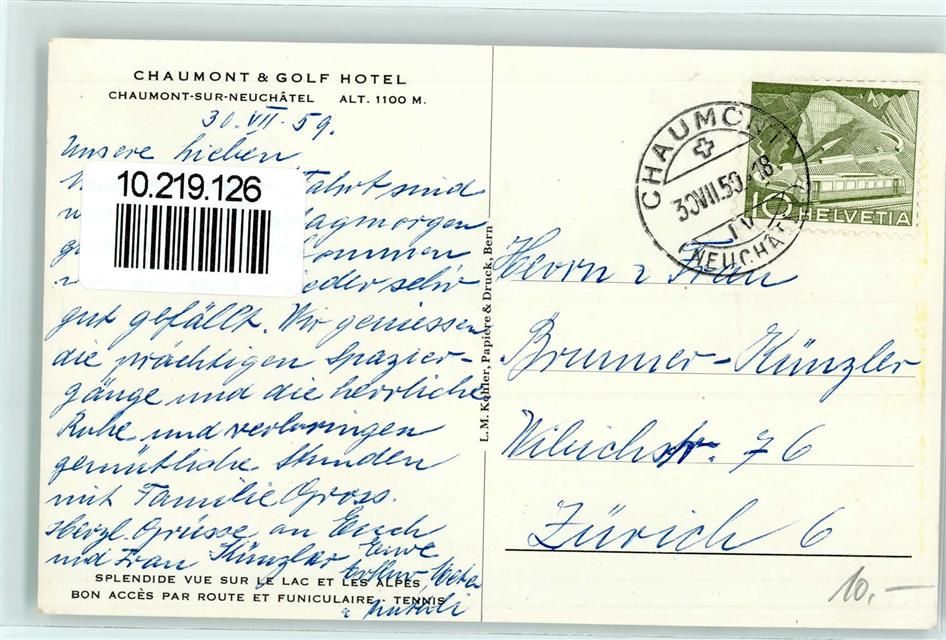 CHAUMONT & GOLF HOTEL
CHAUMONT-SUR-NEUCHÂTEL ALT. 1100 M.
30. VII. 59.
Unsere Lieben
Fahrt sind
10.219.126
tagmorgen
kommen
ieder sehr
gut gefällt. Wir geniessen
die prächtigen Spazier-
gänge und die herrliche
Ruhe und verbringen
gemütliche Stunden
mit Familie Gross.
Herzl. Grüsse an Euch
und Frau Künzler Eure
Arthur
SPLENDIDE VUE SUR LE LAC ET LES ALPES
BON ACCÈS PAR ROUTE ET FUNICULAIRE - TENNIS
L. M. Kohler, Papiere & Druck, Bern
CHAUMONT
30.VII.59.-18
NEUCHÂTEL
10 HELVETIA
Herrn & Frau
Brunner-Künzler
76
Zürich 6
10.-